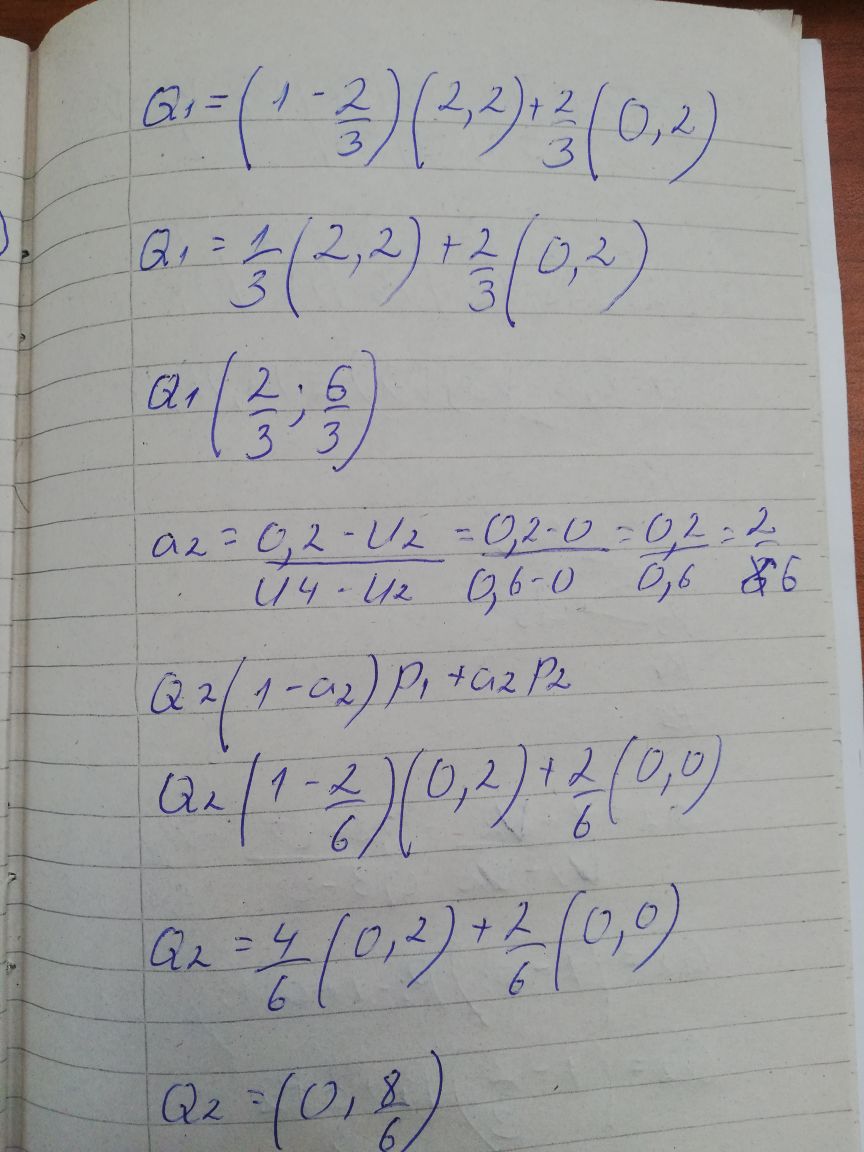 Q1 = (1 - 2/3)(2,2) + 2/3(0,2)
Q1 = 1/3(2,2) + 2/3(0,2)
Q1(2/3; 6/3)
a2 = (0,2 - U2)/(U4 - U2) = (0,2-0)/(0,6-0) = 0,2/0,6 = 2/6
Q2(1-a2)P1 + a2P2
Q2(1 - 2/6)(0,2) + 2/6(0,0)
Q2 = 4/6(0,2) + 2/6(0,0)
Q2 = (0, 8/6)